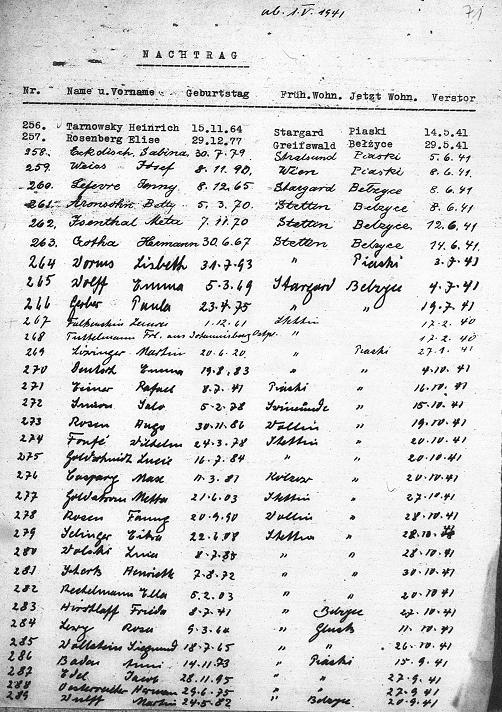 ab. 1.V. 1941
71
NACHTRAG
Nr. Name u.Vorname Geburtstag Früh.Wohn. Jetzt Wohn. Verstor
256. Tarnowsky Heinrich 15.11.64 Stargard Piaski 14.5.41
257. Rosenberg Elise 29.12.77 Greifswald Bełżyce 29.5.41
258. Sabina 30.7.79 Stralsund Piaski 5.6.41
259. Weiss Josef 8.11.90. Wien Piaski 8.6.41.
260. Lefevre Jenny 8.12.65 Stargard Belzyce 8.6.41
261. Aronsohn Betty 5.3.70 Stettin Belzyce 8.6.41
262. Isenthal Meta 7.11.70 Stettin Belzyce. 12.6.41
263. Gotha Hermann 30.6.67 Stettin Belzyce 14.6.41.
264 Worms Lisbeth 31.7.93 " Piaski 3.7.41
265 Wolff Emma 5.3.69 Stargard Belzyce 4.7.41
266 Gerber Paula 23.4.75 " " 19.7.41
267 Falkenstein 1.12.61 Stettin 17.2.40
268 Frl. aus Johannisburg Ostpr. " 17.2.40
269 Martin 20.6.20 Piaski 27.1.41
270 Deutsch Emma 19.8.83 " 4.10.41
271 Rafael 8.7.41 Piaski " 16.10.41
272 Simson Salo 5.2.78 Swinemünde " 15.10.41
273 Rosen Hugo 30.11.86 Wollin " 19.10.41
274 Wilhelm 24.3.78 Stettin " 20.10.41
275 Goldschmidt Lucie 16.7.84 " " 20.10.41
276 Caspary Max 11.3.81 " 20.10.41
277 Goldstrom Metta 21.6.03 Stettin " 27.10.41
278 Rosen Fanny 20.9.90 Wollin " 28.10.41
279 Selinger Erika 22.6.08 Stettin " 28.10.
280 8.7.85 " " 28.10.41
281 Scherk Henriette 7.8.72 " " 30.10.41
282 Rechelmann Ella 5.2.03 " " 20.10.41
283 Hirschlaff Frieda 8.7.41 " Belzyce 27.10.41
284 Levy Rosa 9.3.60 " Glusk 11.10.41
285 Wollstein Siegmund 18.7.65 " " 26.10.41
286 Baden 14.11.73 " Piaski 15.9.41
287 Edel Jacob 28.11.95 " 27.9.41
288 Herman 29.6.75 " " 27.9.41
289 Wulff Martin 24.5.82 " Belzyce 20.9.41